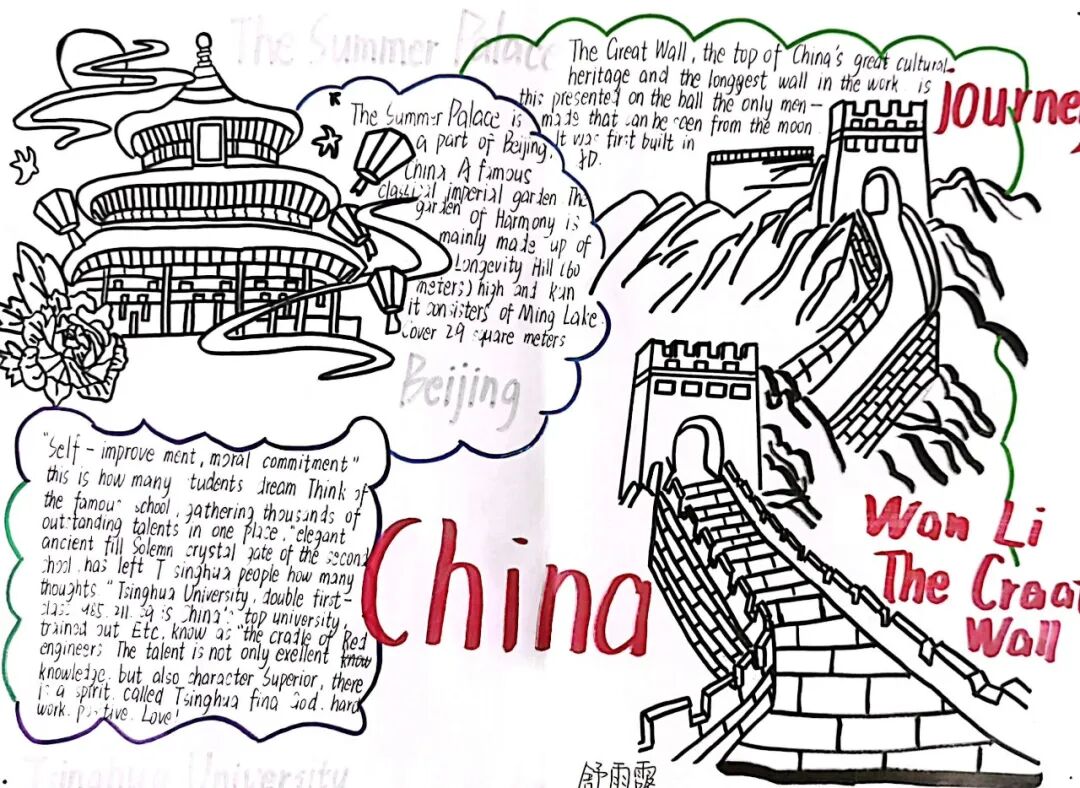 The Summer Palace
The Great Wall, the top of China's great cultural
heritage and the longgest wall in the work is
this presented on the ball the only men-
made that can be seen from the moon.
It was first built in
journe
The Summer Palace is
a part of Beijing,
China. A famous
classical imperial garden The
garden of Harmony is
mainly made up of
Longevity Hill (60
meters) high and kun
it consisters of Ming Lake.
Cover 2.9 square meters
Beijing
"Self - improve ment, moral commitment"
this is how many tudents dream Think of
the famous school, gathering thousands of
outstanding talents in one place, "elegant
ancient fill Solemn crystal gate of the second
school has left T singhua people how many
thoughts." Tsinghua University, double first-
class 985, 211, is China's top university,
trained out Etc, know as "the cradle of Red
engineers The talent is not only exellent
knowledge, but also character Superior, there
is a spirit called Tsinghua fina God, hard
work, Love!
China
Wan Li
The Great
Wall
Tsinghua University
舒雨霞